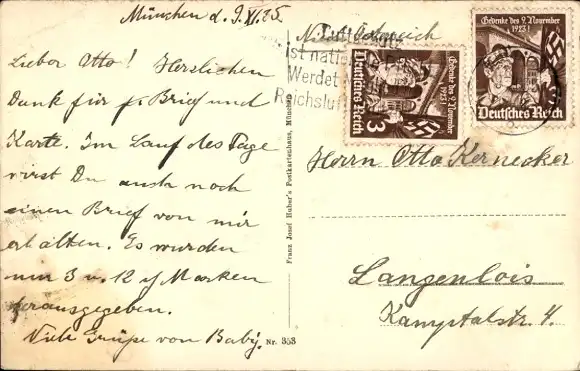 München d. 9.XI.35.
N. Österreich
Lieber Otto! Herzlichen
Dank für fr. Brief und
Karte. Im Lauf des Tages
wirst Du auch noch
einen Brief von mir
erhalten. Es wurden
nur 3 u. 12 Marken
herausgegeben.
Viele Grüße von Baby.
Nr. 353
Franz Josef Huber's Postkartenhaus, München
ist nati
Werdet
Reichsluf
Gedenke des 9. November
1923!
Deutsches Reich
3
Gedenke des 9. November
1923!
Deutsches Reich
Herrn Otto Kernecker
Langenlois
Kamptalstr. 4.